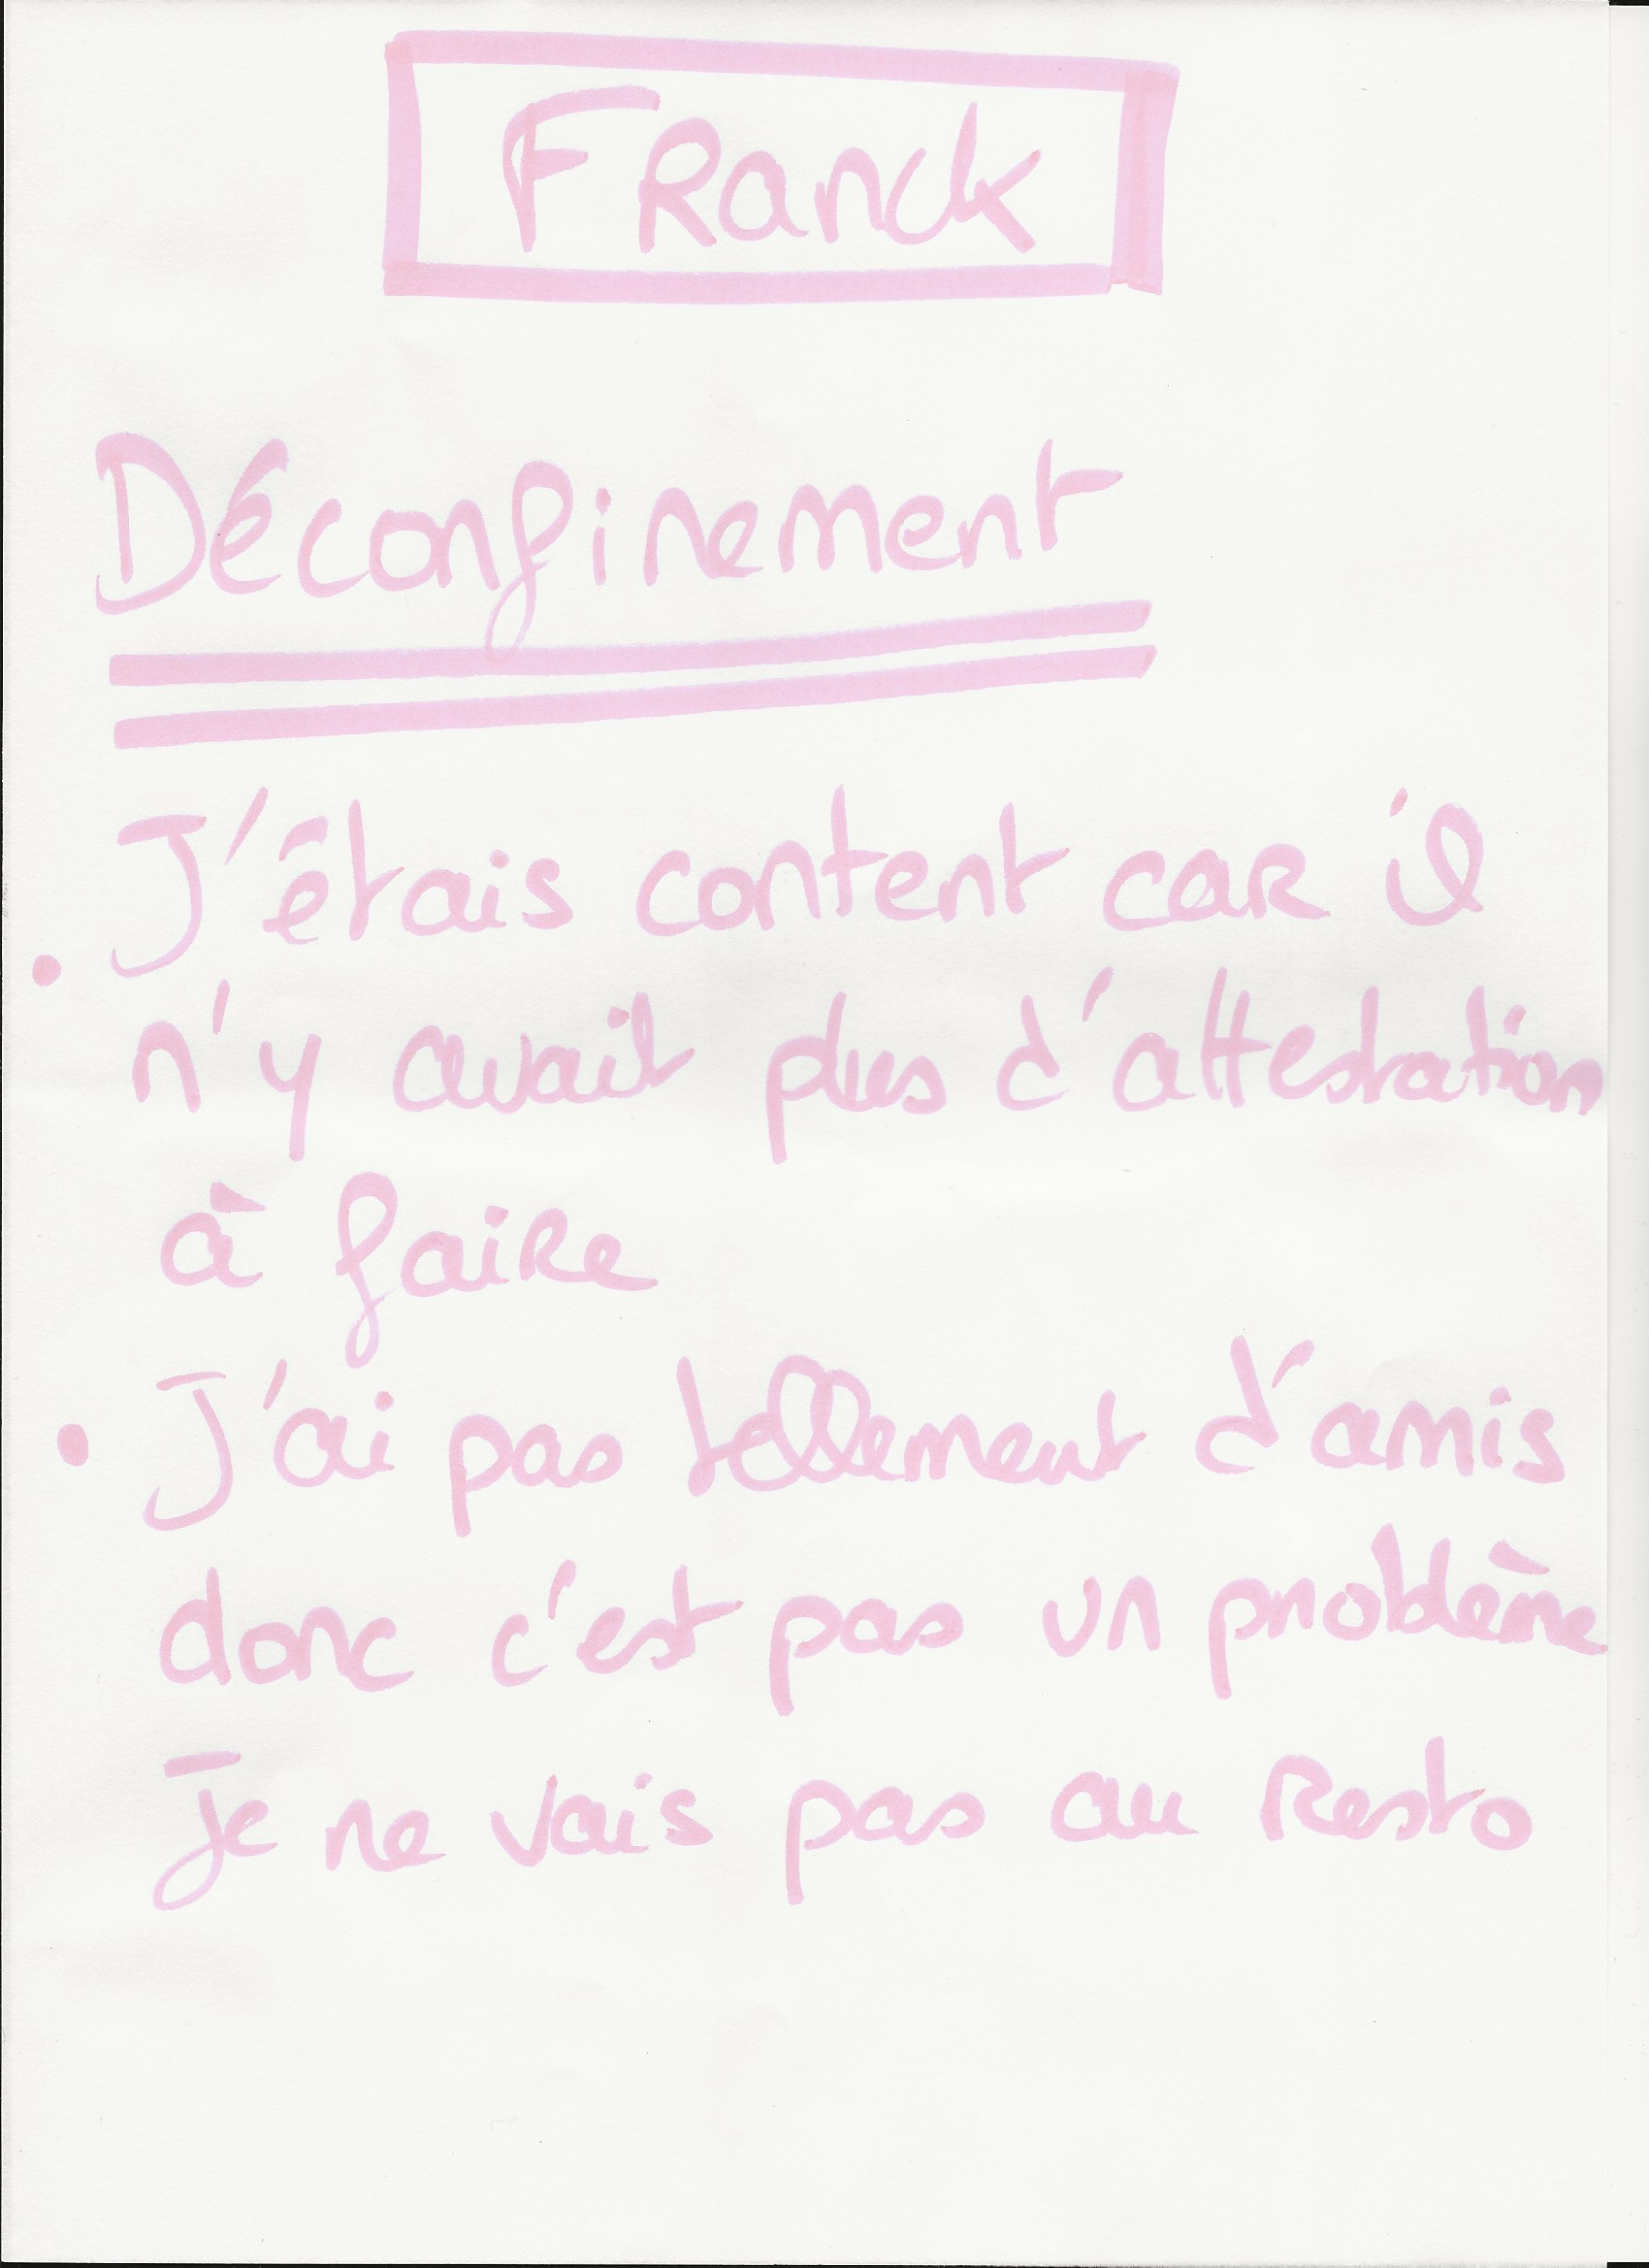 FRanck
Déconfinement
J'étais content car il
n'y avait plus d'attestation
à faire
J'ai pas tellement d'amis
donc c'est pas un problème
Je ne vais pas au Resto